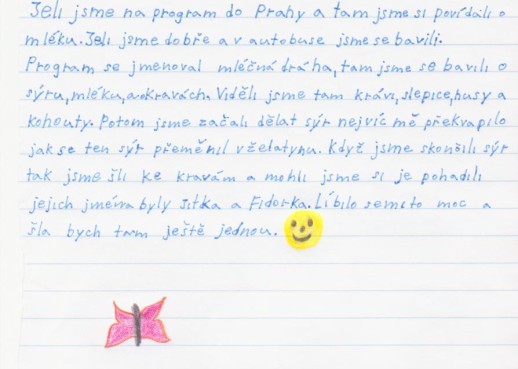 Jeli jsme na program do Prahy a tam jsme si povídali o
mléku. Jeli jsme dobře a v autobuse jsme se bavili.
Program se jmenoval mléčná dráha, tam jsme se bavili o
sýru, mléku, a o kravách. Viděli jsme tam krávi, slepice, husy a
kohouty. Potom jsme začali dělat sýr nejvíc mě překvapilo
jak se ten sýr přeměnil v želatynu. Když jsme skončili sýr
tak jsme šli ke kravám a mohli jsme si je pohadili
jejich jména byly Jitka a Fidorka. Líbilo se mi to moc a
šla bych tam ještě jednou.